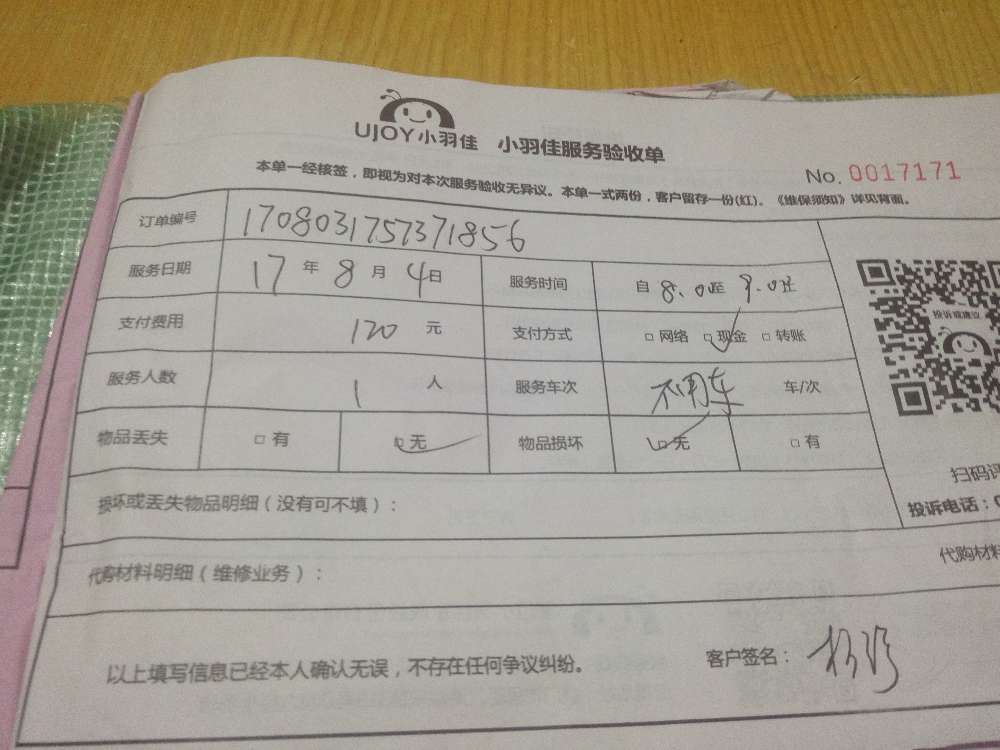 UJOY小羽佳 小羽佳服务验收单
No. 0017171
本单一经核签，即视为对本次服务验收无异议。本单一式两份，客户留存一份(红)。《维保须知》详见背面。
订单编号 1708031757371856
服务日期 17 年 8 月 4 日 服务时间 自 8.0 至 9.0 止
投诉或建议
支付费用 120 元 支付方式 □ 网络 □ 现金 □ 转账
服务人数 1 人 服务车次 不用车 车/次
物品丢失 □ 有 □ 无 物品损坏 □ 无 □ 有
扫码评
损坏或丢失物品明细（没有可不填）：
投诉电话：0
代购材料明细（维修业务）：
代购材料
以上填写信息已经本人确认无误，不存在任何争议纠纷。 客户签名：